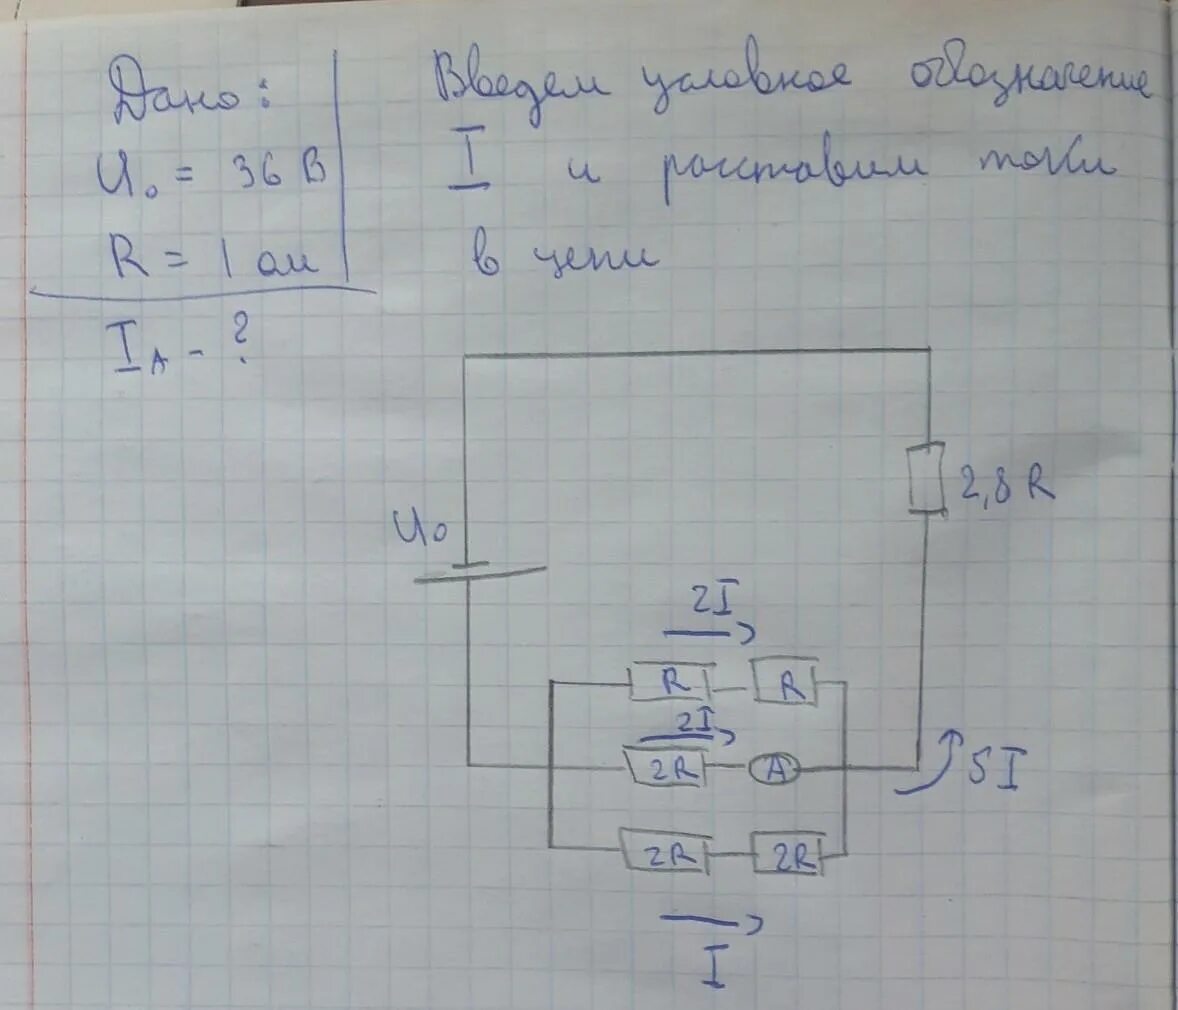 Дано:
U₀ = 36 В
R = 1 ом
I_A - ?
Введем условное обозначение
I и расставим токи
в цепи
2,8 R
U₀
2I
R R
2I
2R A
5I
2R 2R
I